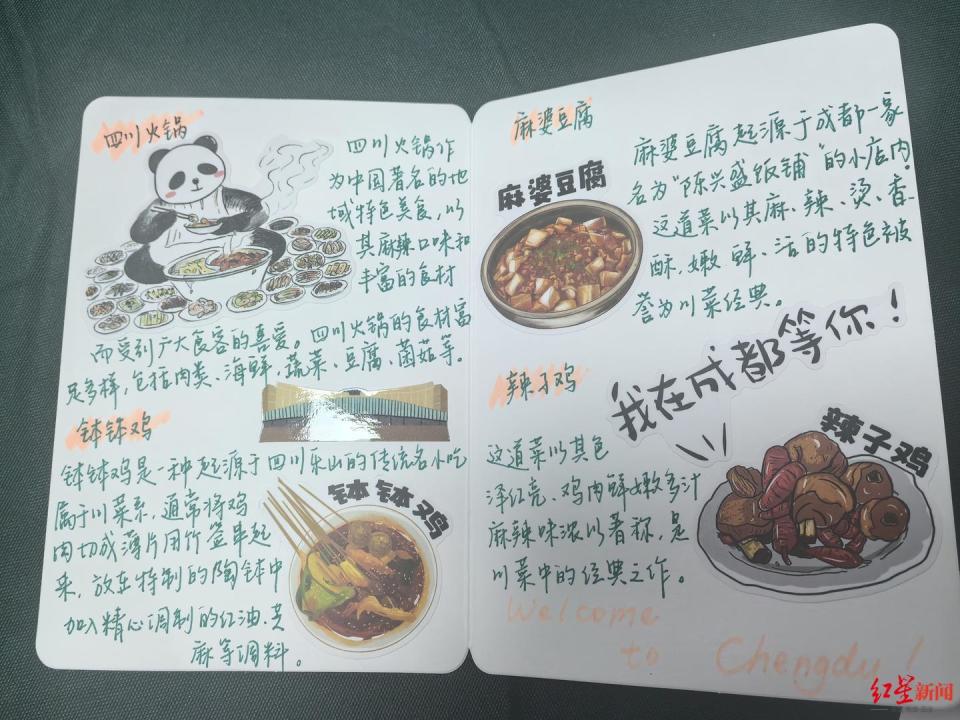 四川火锅
四川火锅作
为中国著名的地
域特色美食,以
其麻辣口味和
丰富的食材
而受到广大食客的喜爱。四川火锅的食材富
足多样,包括肉类、海鲜、蔬菜、豆腐、菌菇等.
钵钵鸡
钵钵鸡是一种起源于四川乐山的传统名小吃
属于川菜系,通常将鸡
肉切成薄片用竹签串起
来,放在特制的陶钵中
加入精心调制的红油.芝
麻等调料。
钵钵鸡
麻婆豆腐
麻婆豆腐
麻婆豆腐起源于成都一家
名为“陈兴盛饭铺”的小店内.
这道菜以其麻、辣、烫、香.
酥,嫩 鲜、活的特色被
誉为川菜经典。
我在成都等你!
辣子鸡
辣子鸡
这道菜以其色
泽红亮、鸡肉鲜嫩多汁
麻辣味浓以著称,是
川菜中的经典之作。
Welcome
to Chengdu!
红星新闻